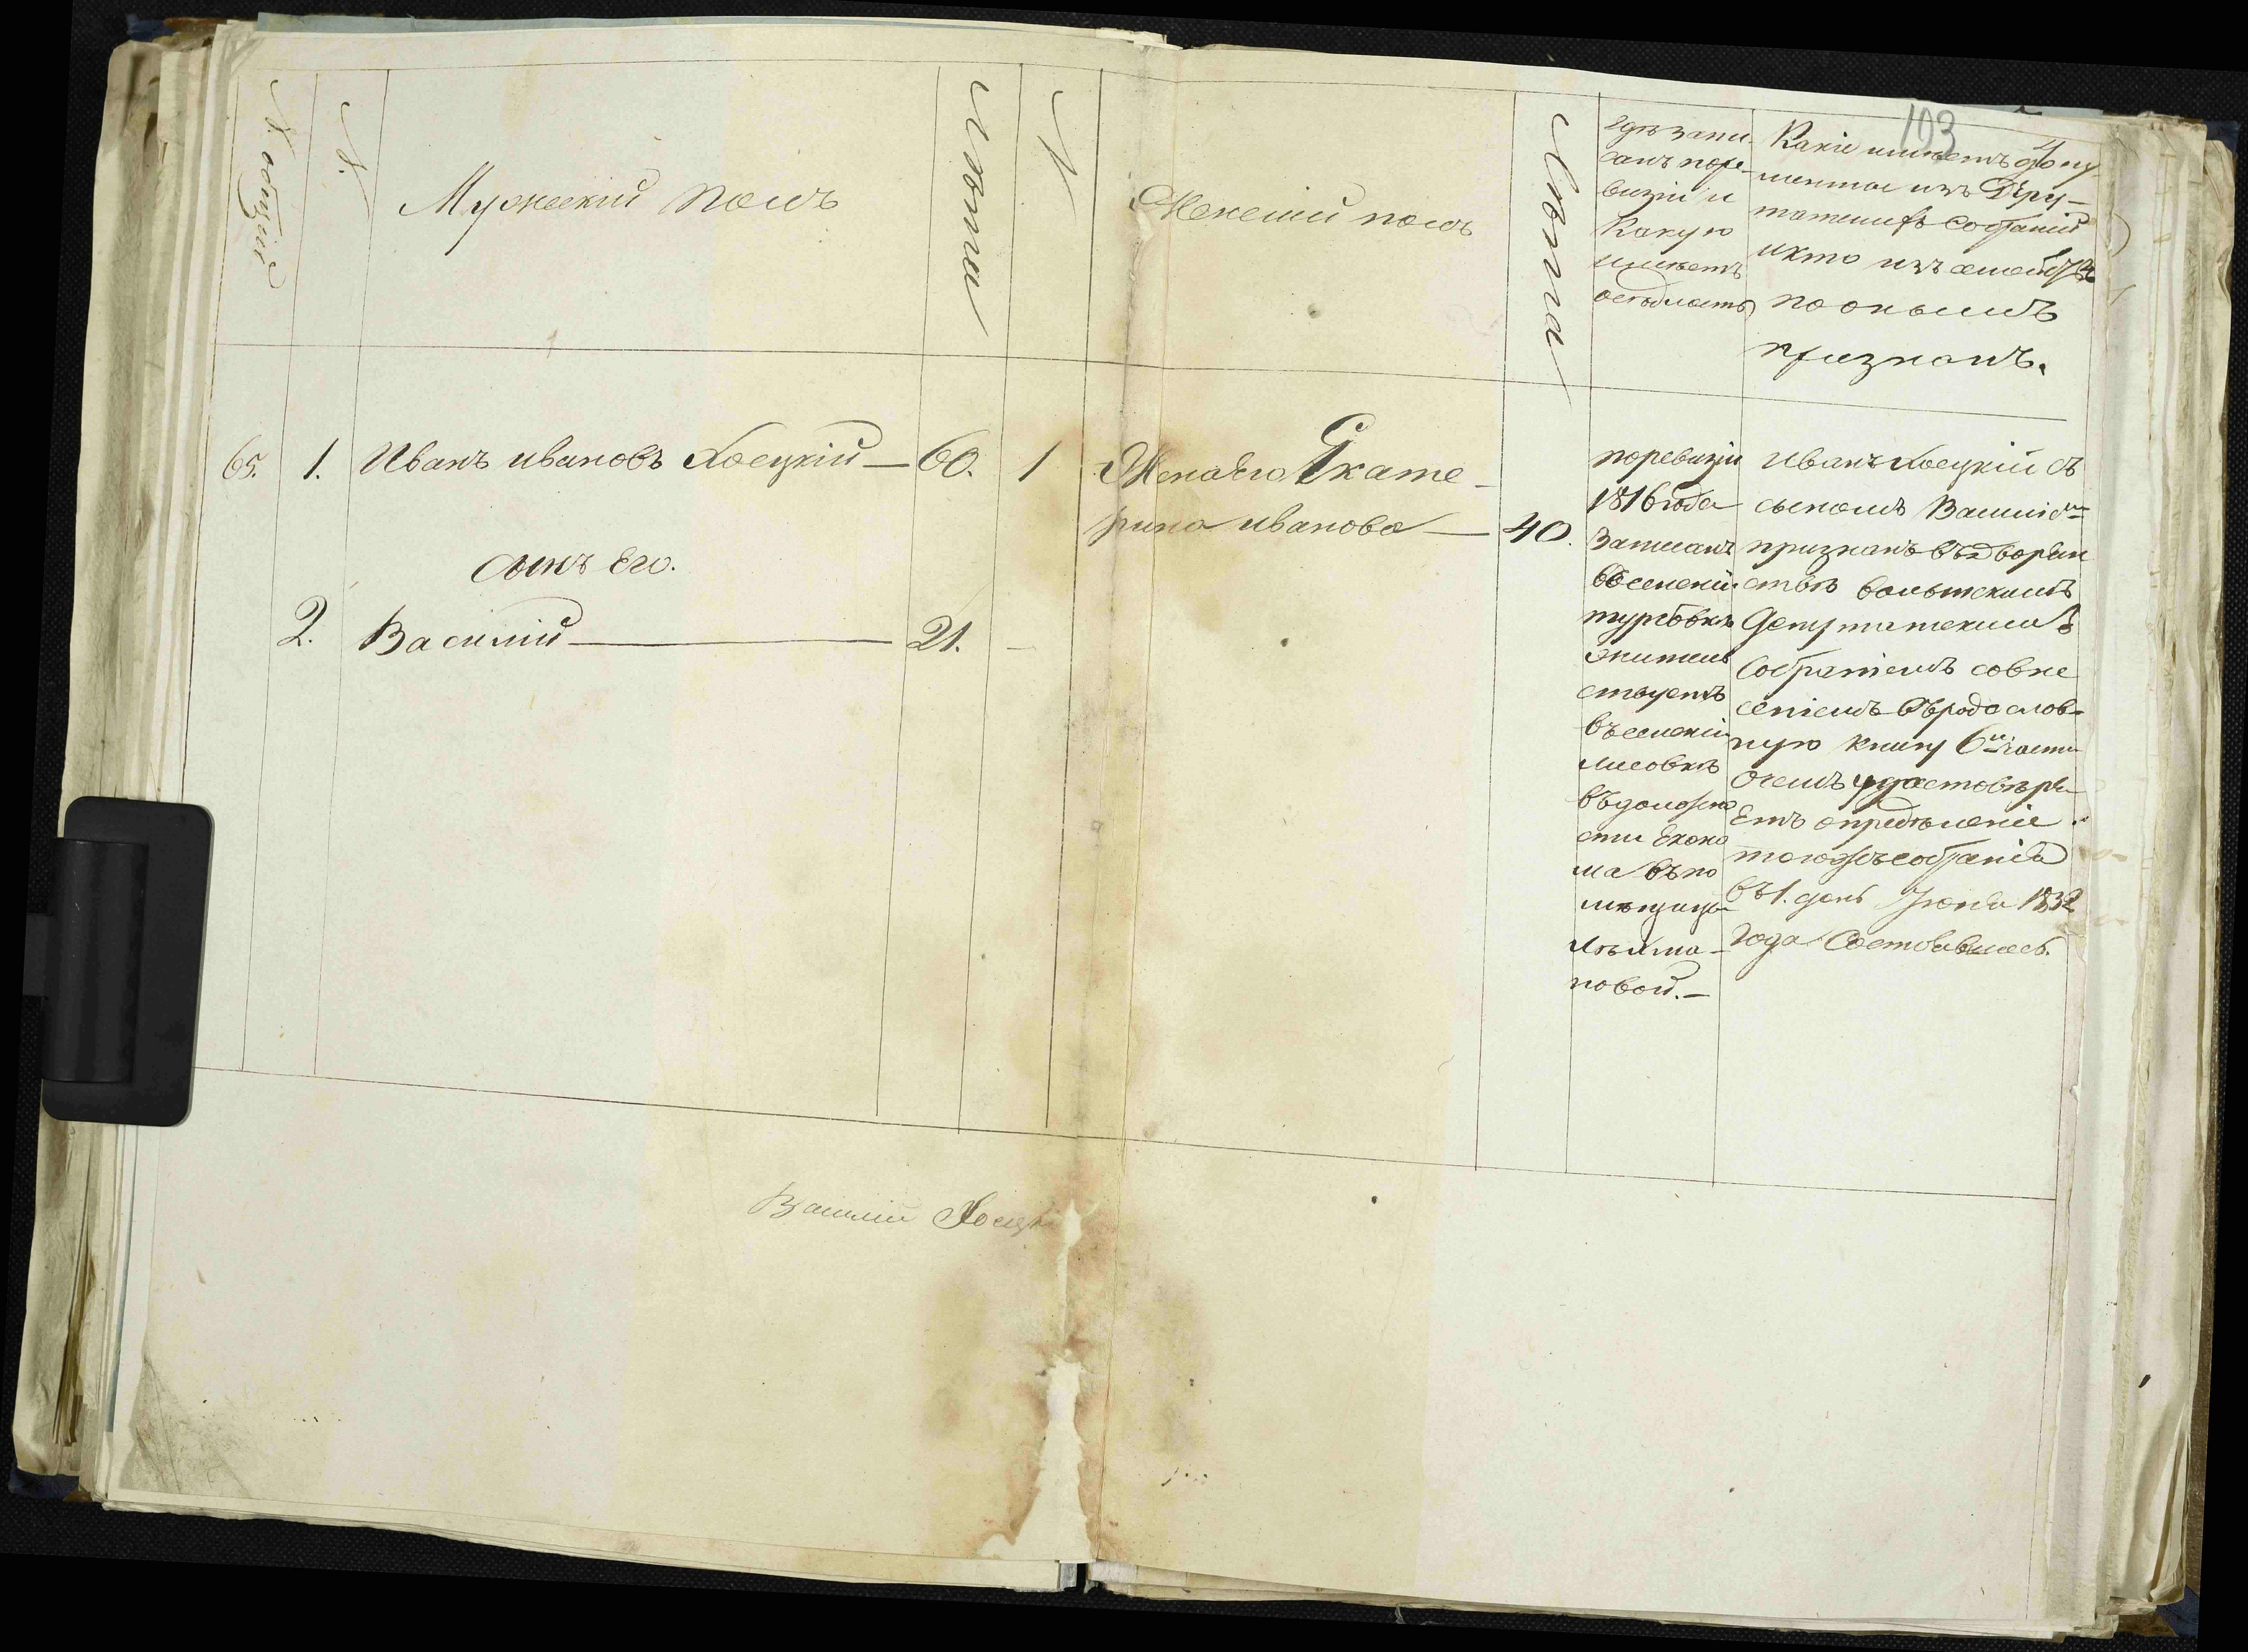 193
№ общій
№.
Мужескій полъ
Лѣта
№
Женскій полъ
Лѣта
Гдѣ запи-
санъ поре-
визіи и
какую
имѣетъ
осѣдлость
Какіе имѣетъ доку
менты изъ Депу-
татскихъ собраній
икто изъ семейства
по онымъ
признанъ.
65. 1. Иванъ ивановъ Косецкій — 60. 1
сынъ Его.
2. Василий — 21.
Жена Его Екате-
рина иванова — 40.
поревизіи
1816 года
Записанъ
въселеніи
турбовкѣ
жител
ствуетъ
въселеніи
лисовкѣ
въдолжно
сти Еконо
ма въпо
мѣщицы
новой. —
иванъ Косецкій съ
сыномъ Василіемъ
признанъ въдворян
ствѣ волынскимъ
Депутатскимъ
Собраніемъ совне
сеніемъ въродослов-
ную книгу 6й части
очемъ удостовѣря-
Етъ опредѣленіе
тогожъ собранія
въ 1. день Іюня 1832
года Состоявшееся.
Василий